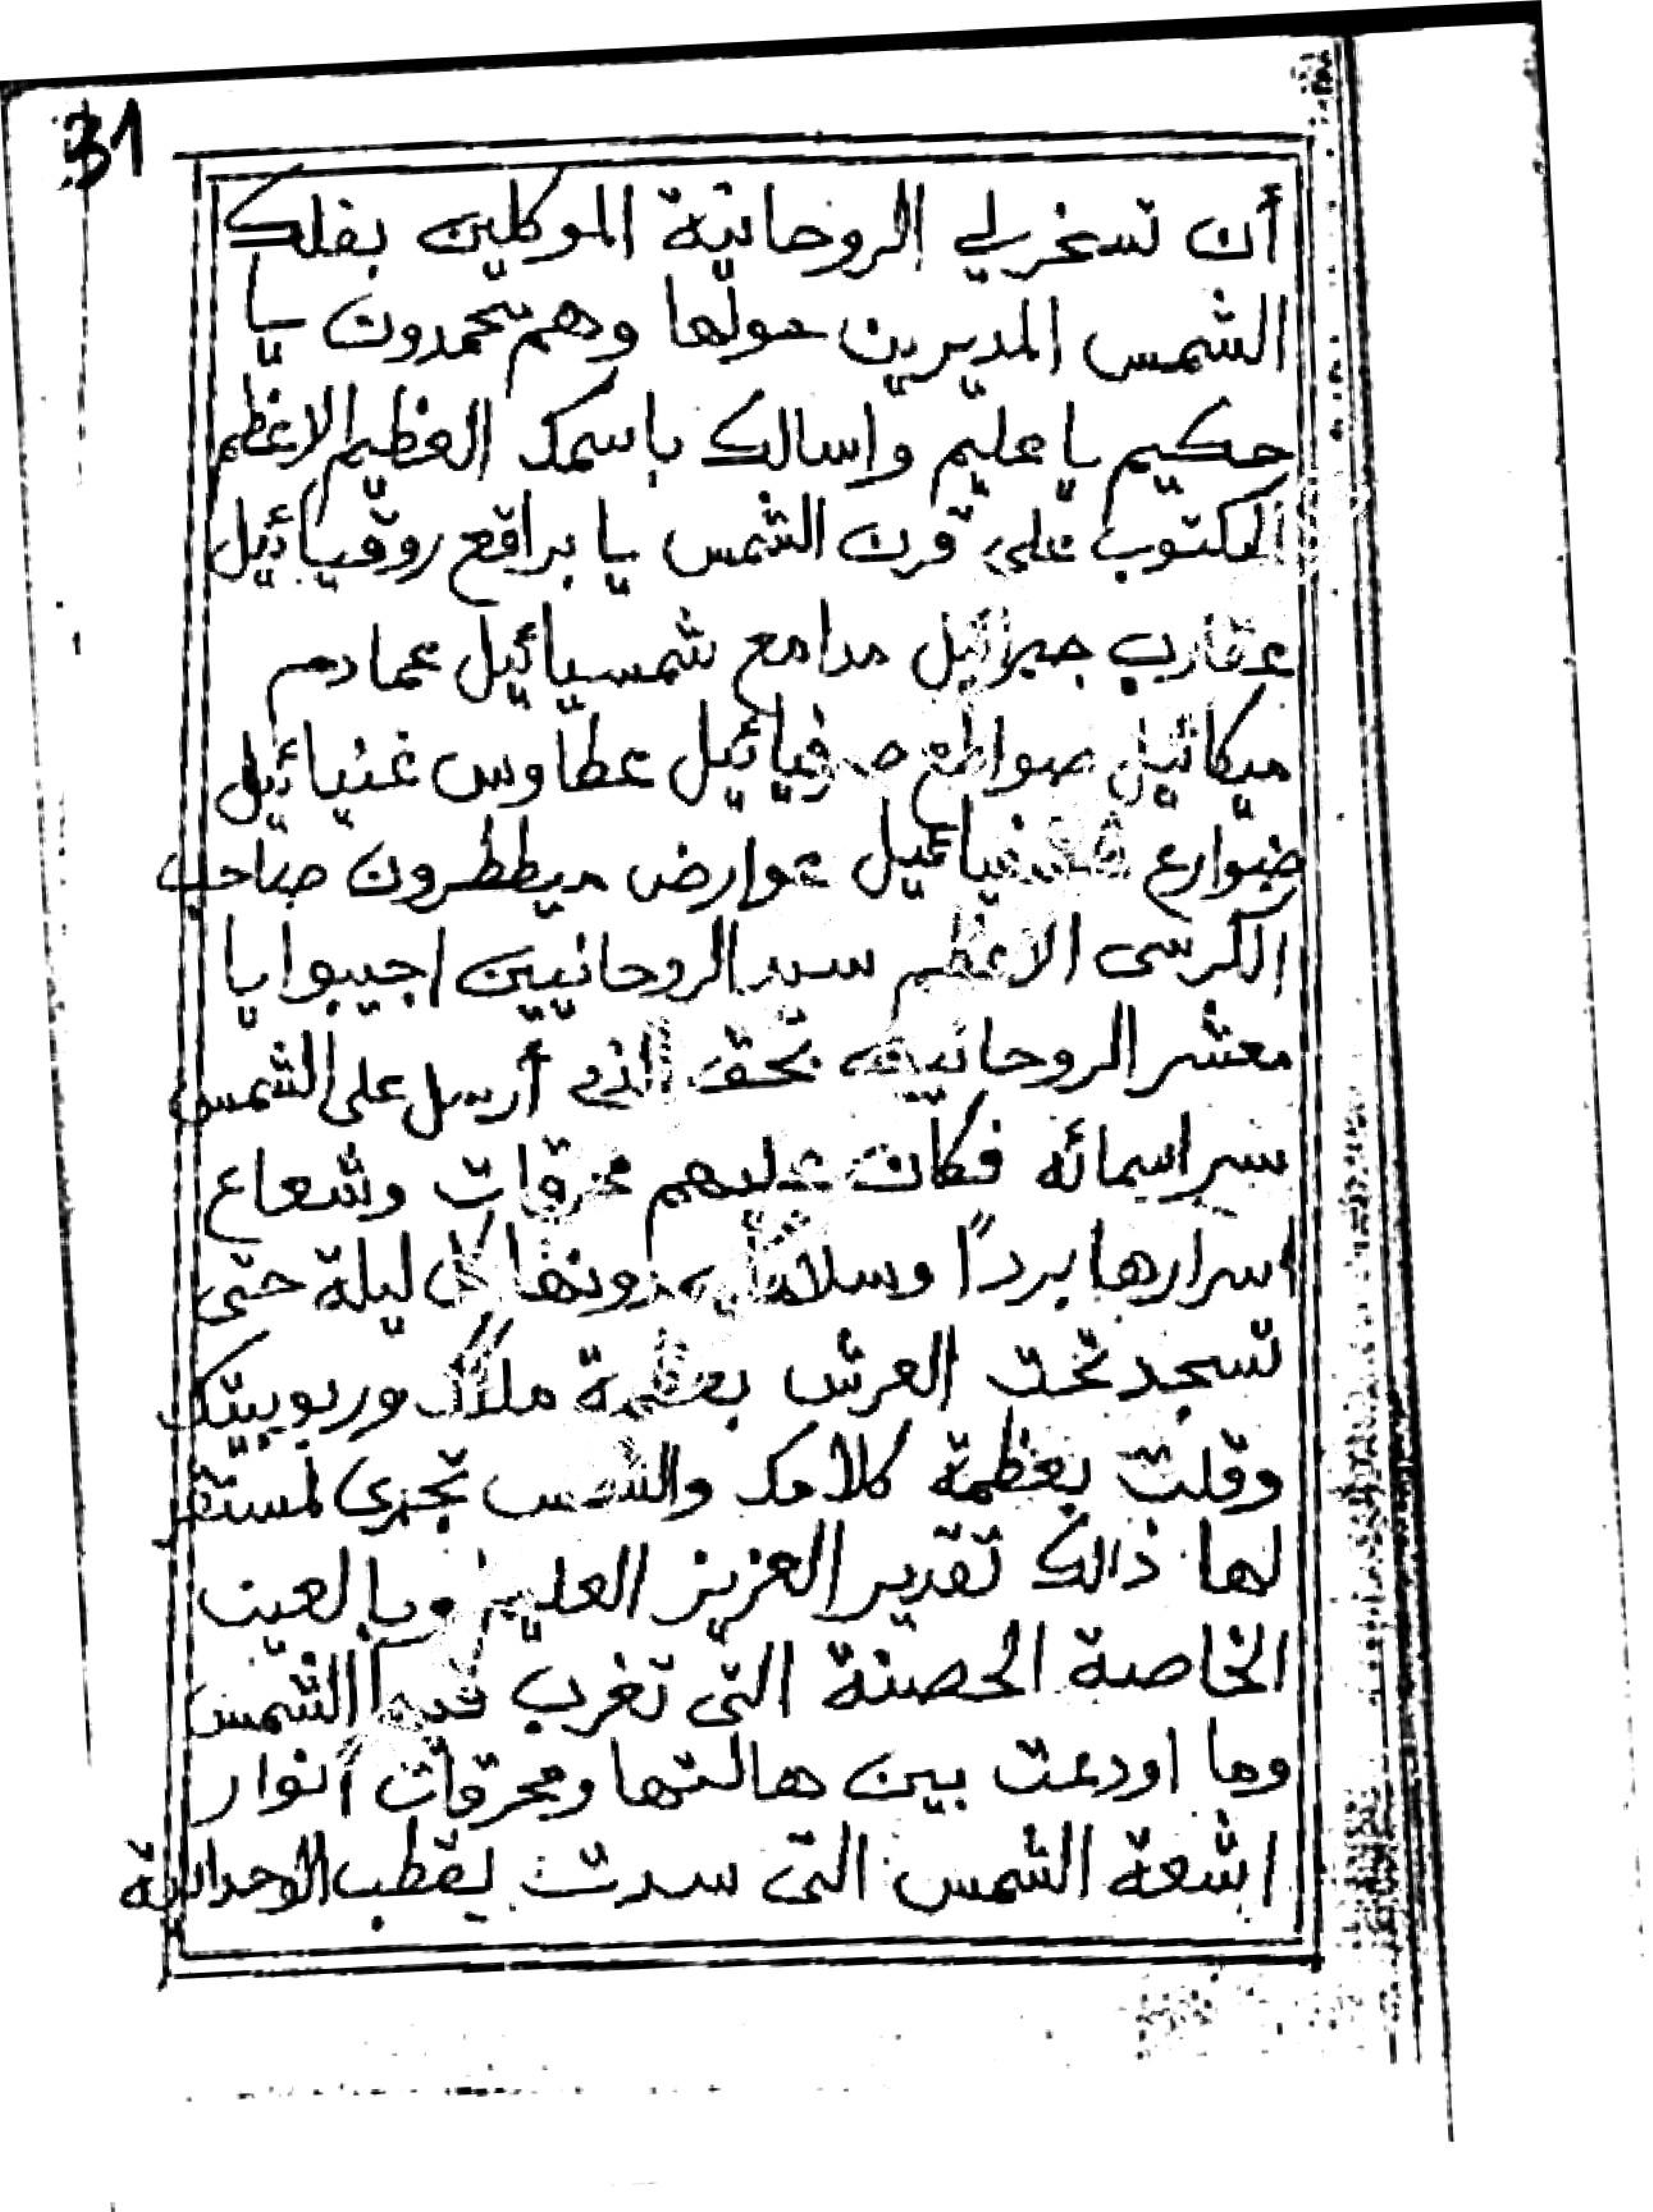 31
أن تسخرلي الروحانية الموكلين بفلك
الشمس المديرين حولها وهم يحمدون يا
حكيم يا عليم واسالك باسمك العظيم الاعظم
المكتوب على قرن الشمس يا براقع روقيائيل
عقارب جبرائيل مدامع شمسيائيل عمادم
ميكائيل صواطع صرفيائيل عطاوس غنيائيل
ضوارع عوارض ميططرون صاحب
الكرسى الاعظم سيد الروحانيين اجيبوا يا
معشر الروحانية بحق الذي أرسل على الشمس
سر اسمائه فكان عليهم محرقات وشعاع
اسرارها بردًا وسلاما كل ليلة حتى
تسجد تحت العرش بعظمة ملكك وربوبيتك
وقلت بعظمة كلامك والشمس تجري لمستقر
لها ذالك تقدير العزيز العليم وبالعين
الخاصة الحصنة التى تغرب فيها الشمس
وما اودعت بين هالتها ومحرقات أنوار
اشعة الشمس التى سدت بقطب